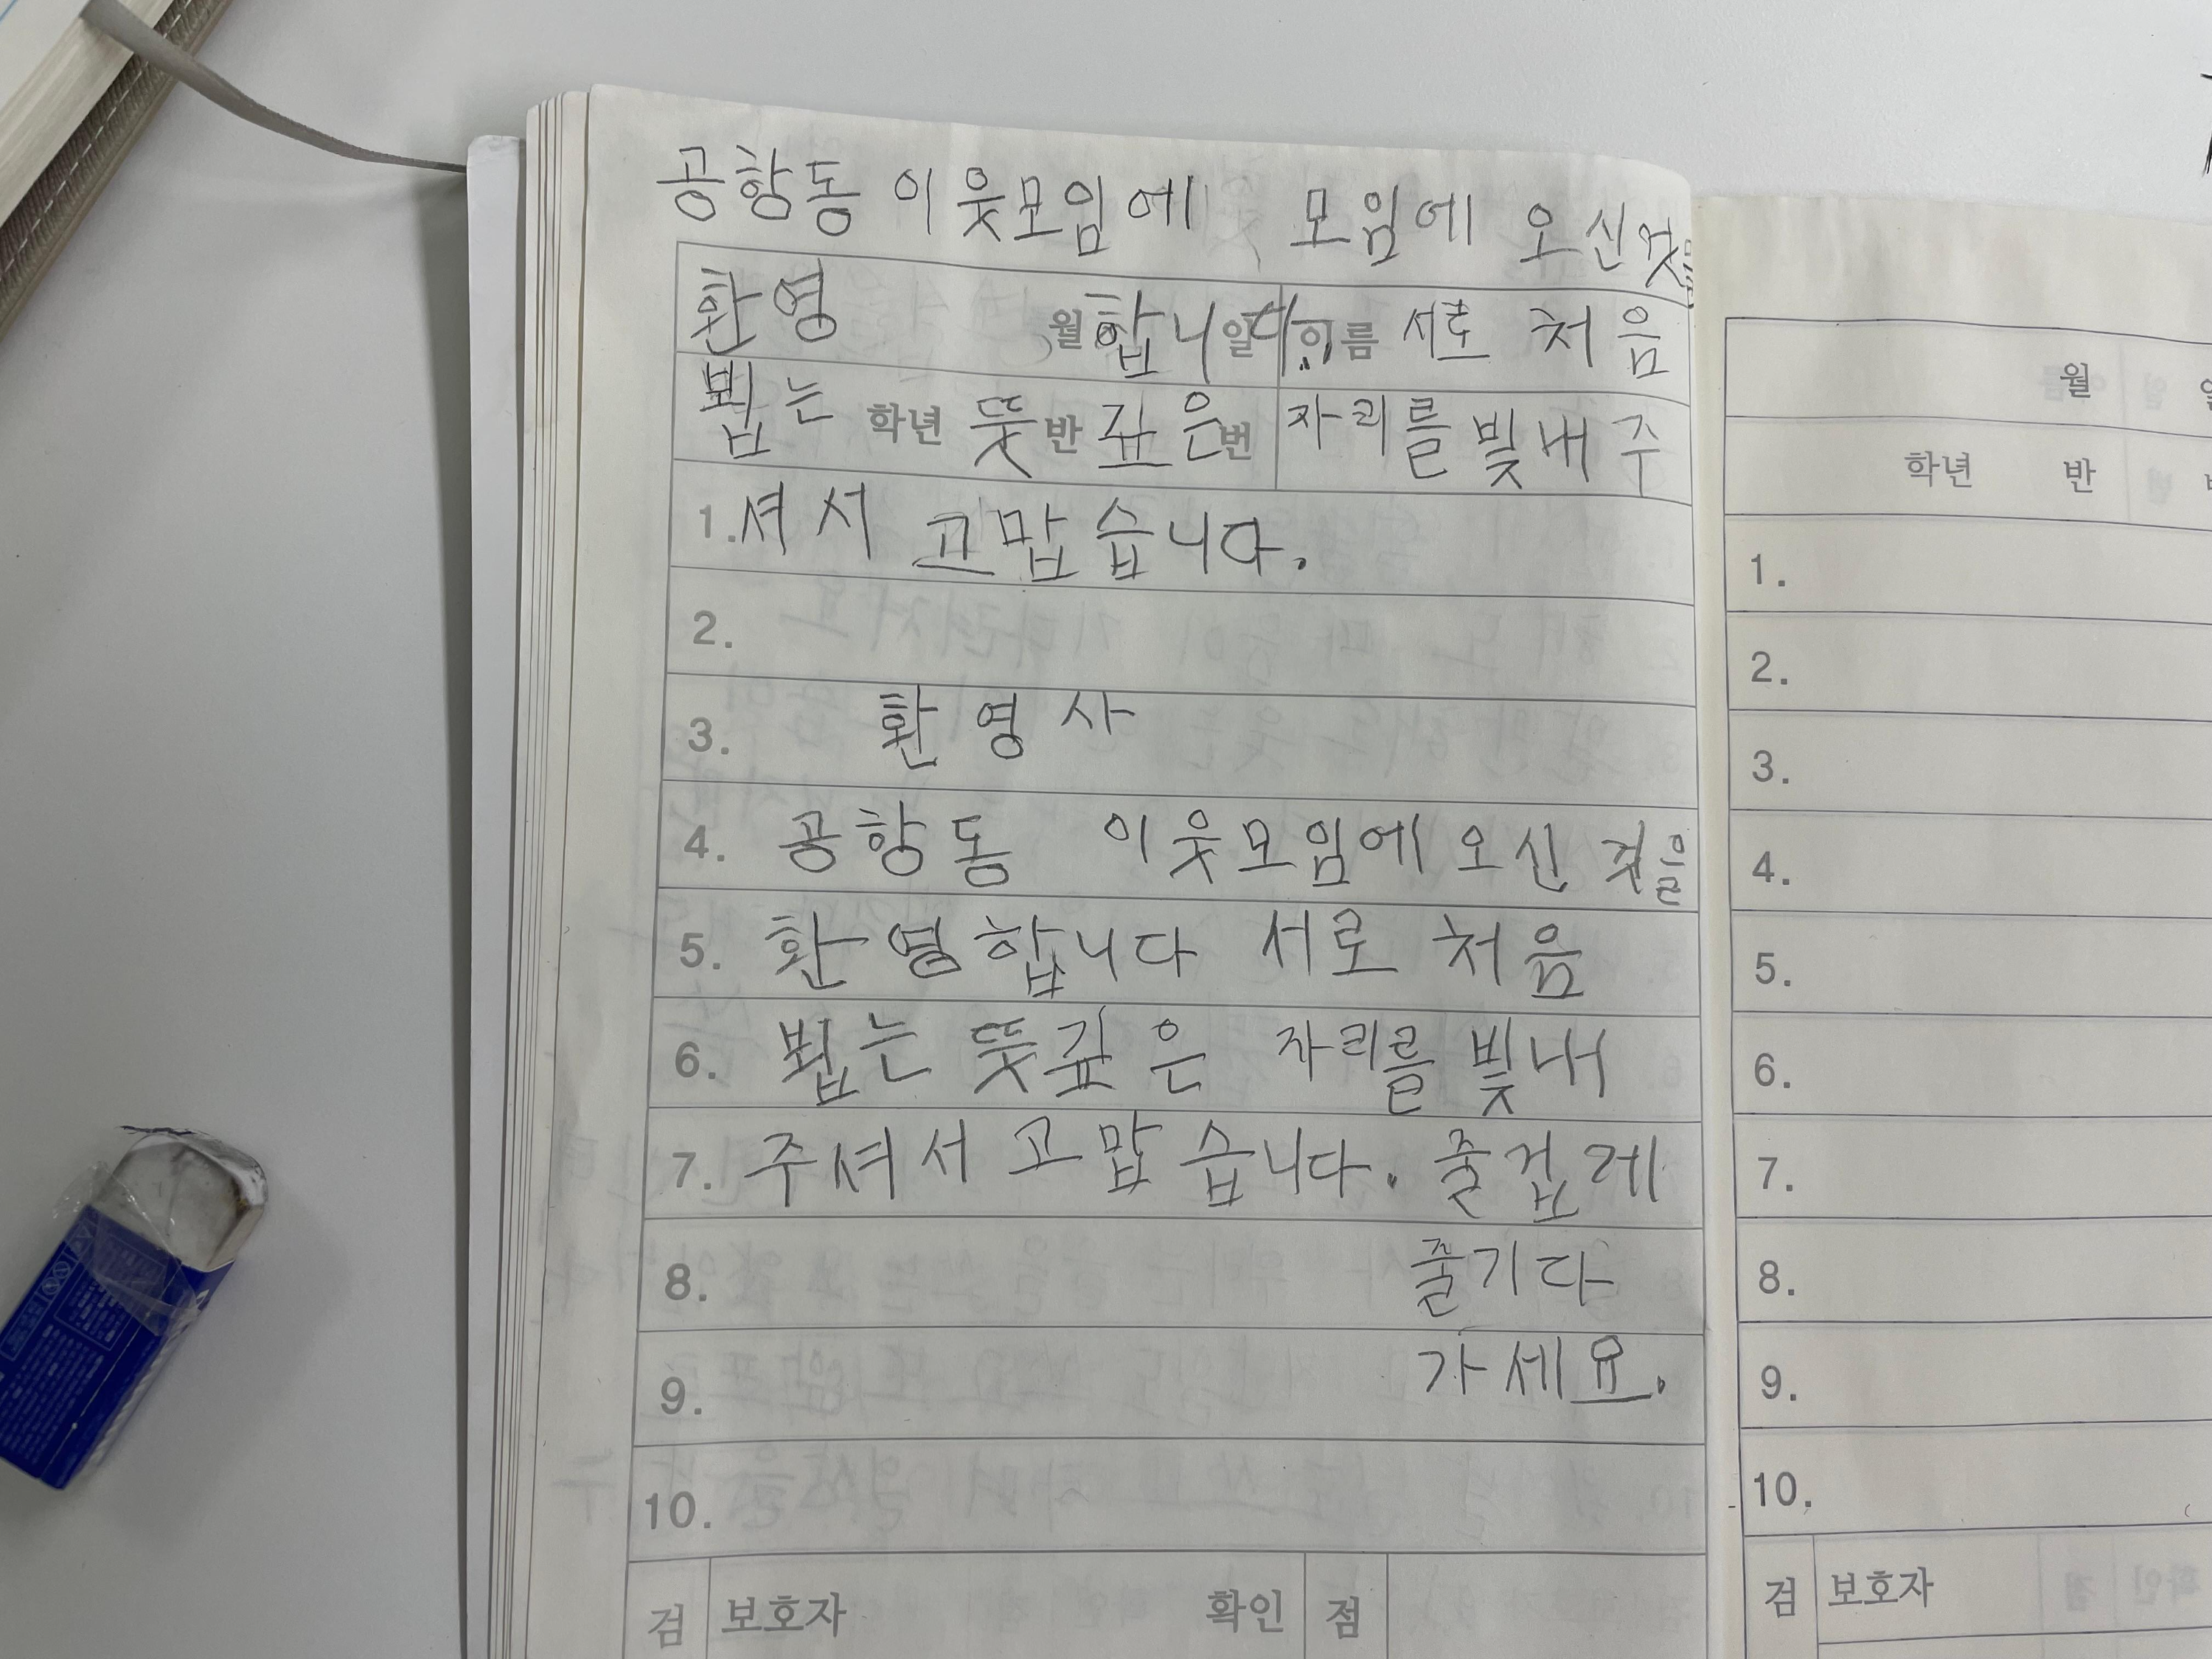 공항동 이웃모임에 모임에 오신것을
환영 월 합니 일 다. 이름 서로 처음
뵙는 학년 뜻 반 깊은 번 자리를 빛내 주
1. 셔서 고맙습니다.
2.
3. 환영사
4. 공항동 이웃모임에 오신 것을
5. 환영합니다 서로 처음
6. 뵙는 뜻깊은 자리를 빛내
7. 주셔서 고맙습니다. 즐겁게
8. 즐기다
9. 가세요.
10.
검 보호자 확인 점
월
학년 반
1.
2.
3.
4.
5.
6.
7.
8.
9.
10.
검 보호자